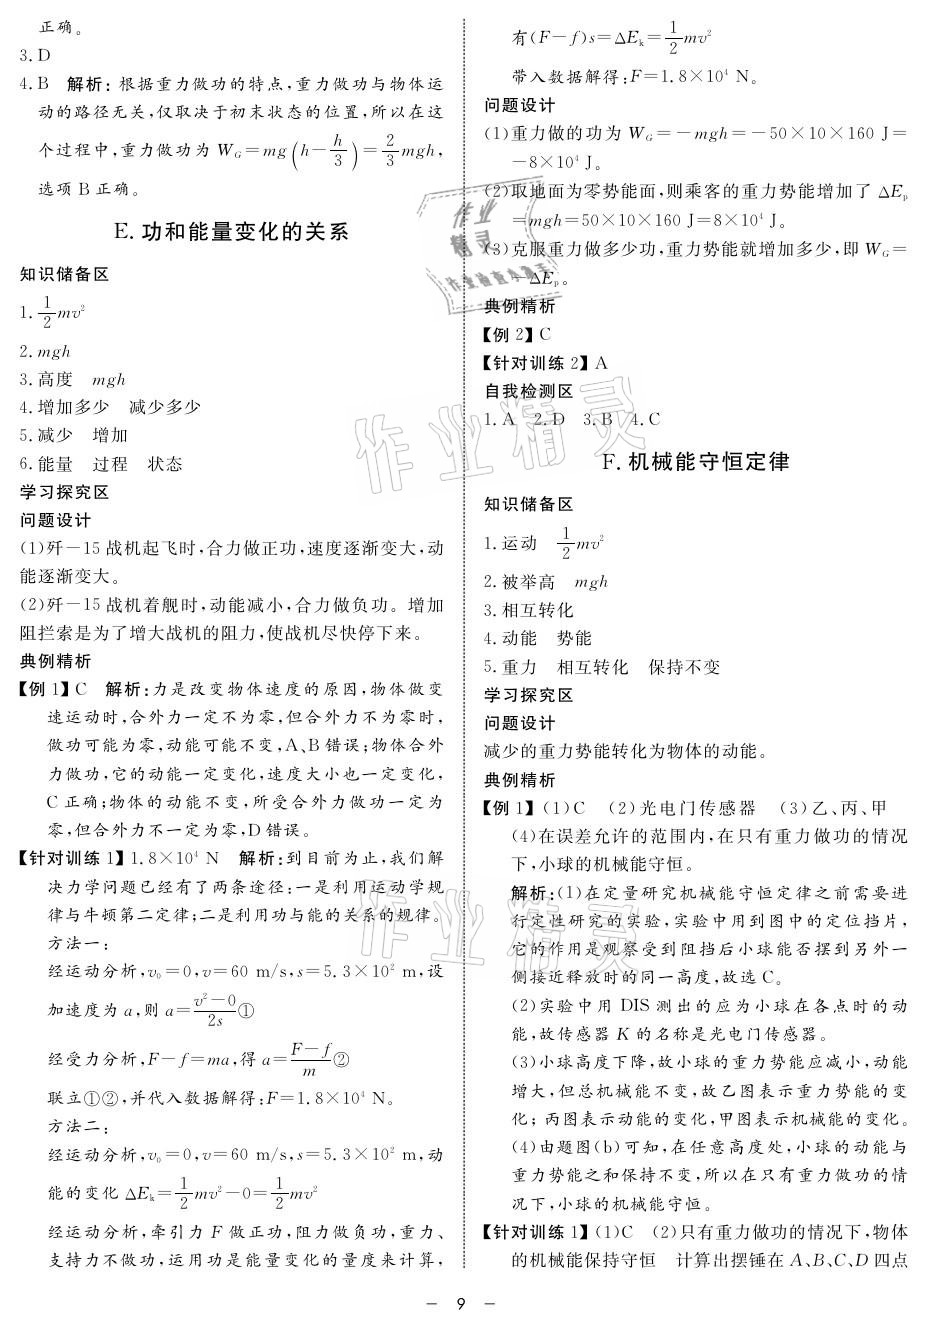 正确。
3. D
4. B 解析:根据重力做功的特点,重力做功与物体运
动的路径无关,仅取决于初末状态的位置,所以在这
个过程中,重力做功为 W_G=mg(h-h/3)=2/3mgh,
选项 B 正确。
E. 功和能量变化的关系
知识储备区
1. 1/2mv²
2. mgh
3. 高度 mgh
4. 增加多少 减少多少
5. 减少 增加
6. 能量 过程 状态
学习探究区
问题设计
(1)歼-15 战机起飞时,合力做正功,速度逐渐变大,动
能逐渐变大。
(2)歼-15 战机着舰时,动能减小,合力做负功。增加
阻拦索是为了增大战机的阻力,使战机尽快停下来。
典例精析
【例 1】C 解析:力是改变物体速度的原因,物体做变
速运动时,合外力一定不为零,但合外力不为零时,
做功可能为零,动能可能不变,A、B 错误;物体合外
力做功,它的动能一定变化,速度大小也一定变化,
C 正确;物体的动能不变,所受合外力做功一定为
零,但合外力不一定为零,D 错误。
【针对训练 1】1.8×10⁴ N 解析:到目前为止,我们解
决力学问题已经有了两条途径:一是利用运动学规
律与牛顿第二定律;二是利用功与能的关系的规律。
方法一:
经运动分析,v₀=0,v=60 m/s,s=5.3×10² m,设
加速度为 a,则 a=(v²-0)/2s①
经受力分析,F-f=ma,得 a=(F-f)/m②
联立①②,并代入数据解得:F=1.8×10⁴ N。
方法二:
经运动分析,v₀=0,v=60 m/s,s=5.3×10² m,动
能的变化 ΔE_k=1/2mv²-0=1/2mv²
经运动分析,牵引力 F 做正功,阻力做负功,重力、
支持力不做功,运用功是能量变化的量度来计算,
有(F-f)s=ΔE_k=1/2mv²
带入数据解得:F=1.8×10⁴ N。
问题设计
(1)重力做的功为 W_G=-mgh=-50×10×160 J=
-8×10⁴ J。
(2)取地面为零势能面,则乘客的重力势能增加了 ΔE_p
=mgh=50×10×160 J=8×10⁴ J。
(3)克服重力做多少功,重力势能就增加多少,即 W_G=
-ΔE_p。
典例精析
【例 2】C
【针对训练 2】A
自我检测区
1. A 2. D 3. B 4. C
F. 机械能守恒定律
知识储备区
1. 运动 1/2mv²
2. 被举高 mgh
3. 相互转化
4. 动能 势能
5. 重力 相互转化 保持不变
学习探究区
问题设计
减少的重力势能转化为物体的动能。
典例精析
【例 1】(1)C (2)光电门传感器 (3)乙、丙、甲
(4)在误差允许的范围内,在只有重力做功的情况
下,小球的机械能守恒。
解析:(1)在定量研究机械能守恒定律之前需要进
行定性研究的实验,实验中用到图中的定位挡片,
它的作用是观察受到阻挡后小球能否摆到另外一
侧接近释放时的同一高度,故选 C。
(2)实验中用 DIS 测出的应为小球在各点时的动
能,故传感器 K 的名称是光电门传感器。
(3)小球高度下降,故小球的重力势能应减小,动能
增大,但总机械能不变,故乙图表示重力势能的变
化;丙图表示动能的变化,甲图表示机械能的变化。
(4)由题图(b)可知,在任意高度处,小球的动能与
重力势能之和保持不变,所以在只有重力做功的情
况下,小球的机械能守恒。
【针对训练 1】(1)C (2)只有重力做功的情况下,物体
的机械能保持守恒 计算出摆锤在 A、B、C、D 四点
— 9 —
作业精灵
作业精灵
作业精灵
作业检查小助手